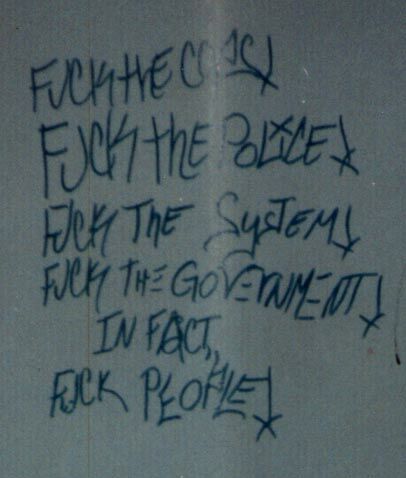 FUCK the COPS!
FUCK the POLICE!
FUCK THE SYSTEM!
FUCK THE GOVERNMENT!
IN FACT,
FUCK PEOPLE!